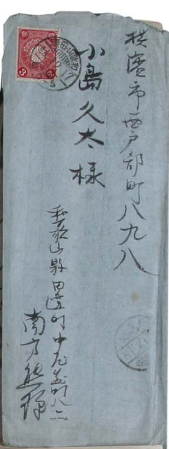 横濱市西戸部町八九八
小島久太様
和歌山縣田辺町中屋敷町
南方熊楠